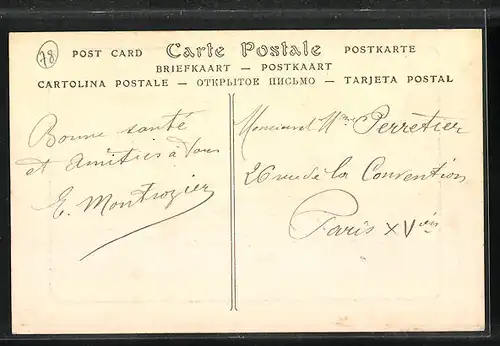 78
POST CARD Carte Postale POSTKARTE
BRIEFKAART — POSTKAART
CARTOLINA POSTALE — ОТКРЫТОЕ ПИСЬМО — TARJETA POSTAL
Bonne santé
et Amitiés à Vous
E. Montrozier
Monsieur et Mme Perretier
26 rue de la Convention
Paris XVèm